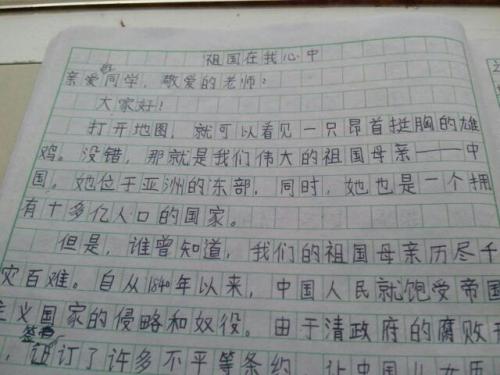 祖国在我心中
亲爱的同学,敬爱的老师:
大家好!
打开地图,就可以看见一只昂首挺胸的雄
鸡。没错,那就是我们伟大的祖国母亲——中
国。她位于亚洲的东部,同时,她也是一个拥
有十多亿人口的国家。
但是,谁曾知道,我们的祖国母亲历尽千
灾百难。自从1840年以来,中国人民就饱受帝国
主义国家的侵略和奴役。由于清政府的腐败
,签订了许多不平等条约,让中国儿女